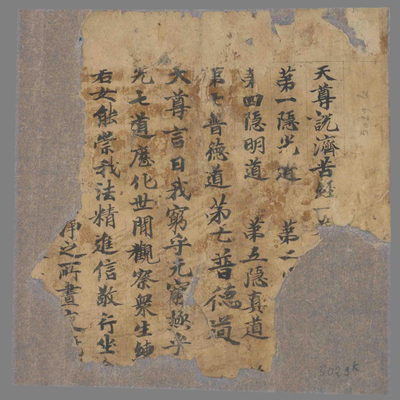 天尊說濟苦經一
第一隱光道 第二
第四隱明道 第五隱真道
第七普德道第七普德道
天尊言曰我窮守元窮極乎
光七道應化世間觀察衆生
若女能崇我法精進信敬行坐
淨之所書